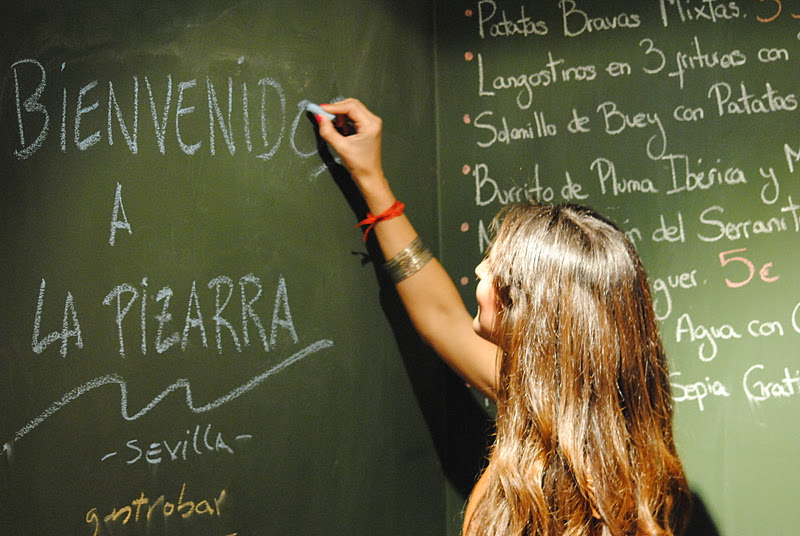 BIENVENIDO
A
LA PIZARRA
- Sevilla -
gastrobar
Patatas Bravas Mixtas. 5
Langostinos en 3 frituras con
Solomillo de Buey con Patatas
Burrito de Pluma Ibérica y
del Serranit
5€
Agua con
Sepia